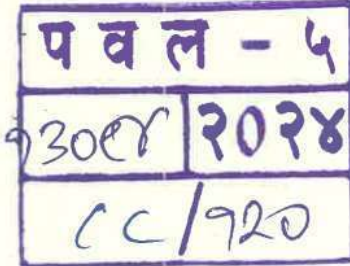 प व ल - ५
१३०९४ २०२४
८८/१२०